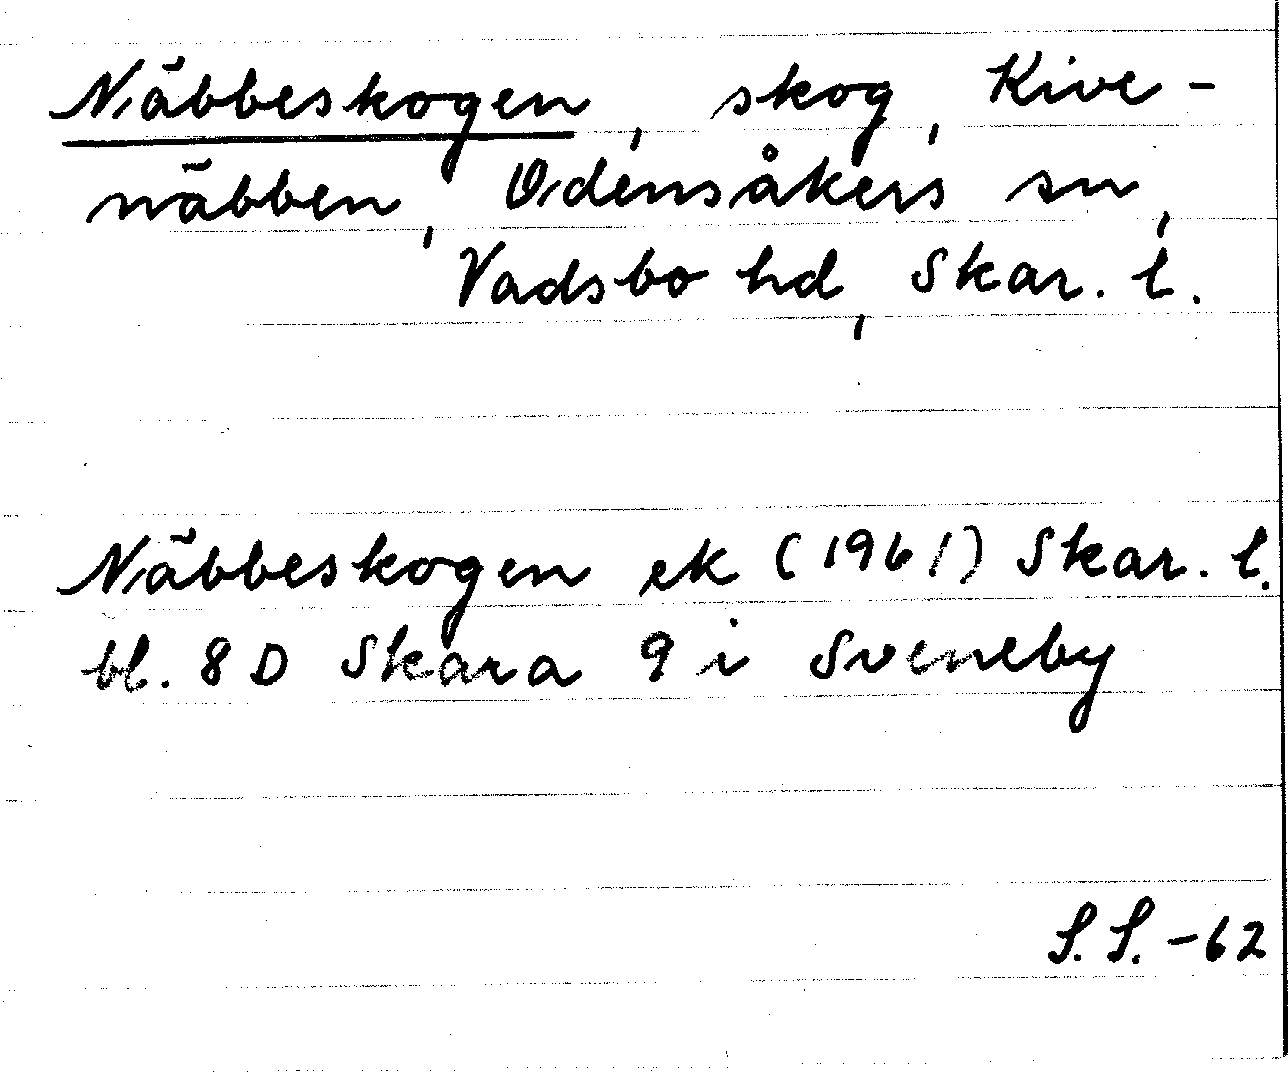 Näbbeskogen, skog, Kive-
näbben, Odensåkers sn,
Vadsbo hd, Skar. l.
Näbbeskogen ek (1961) Skar. l.
bl. 8 D Skara 9 i Sveneby
S.S. -62